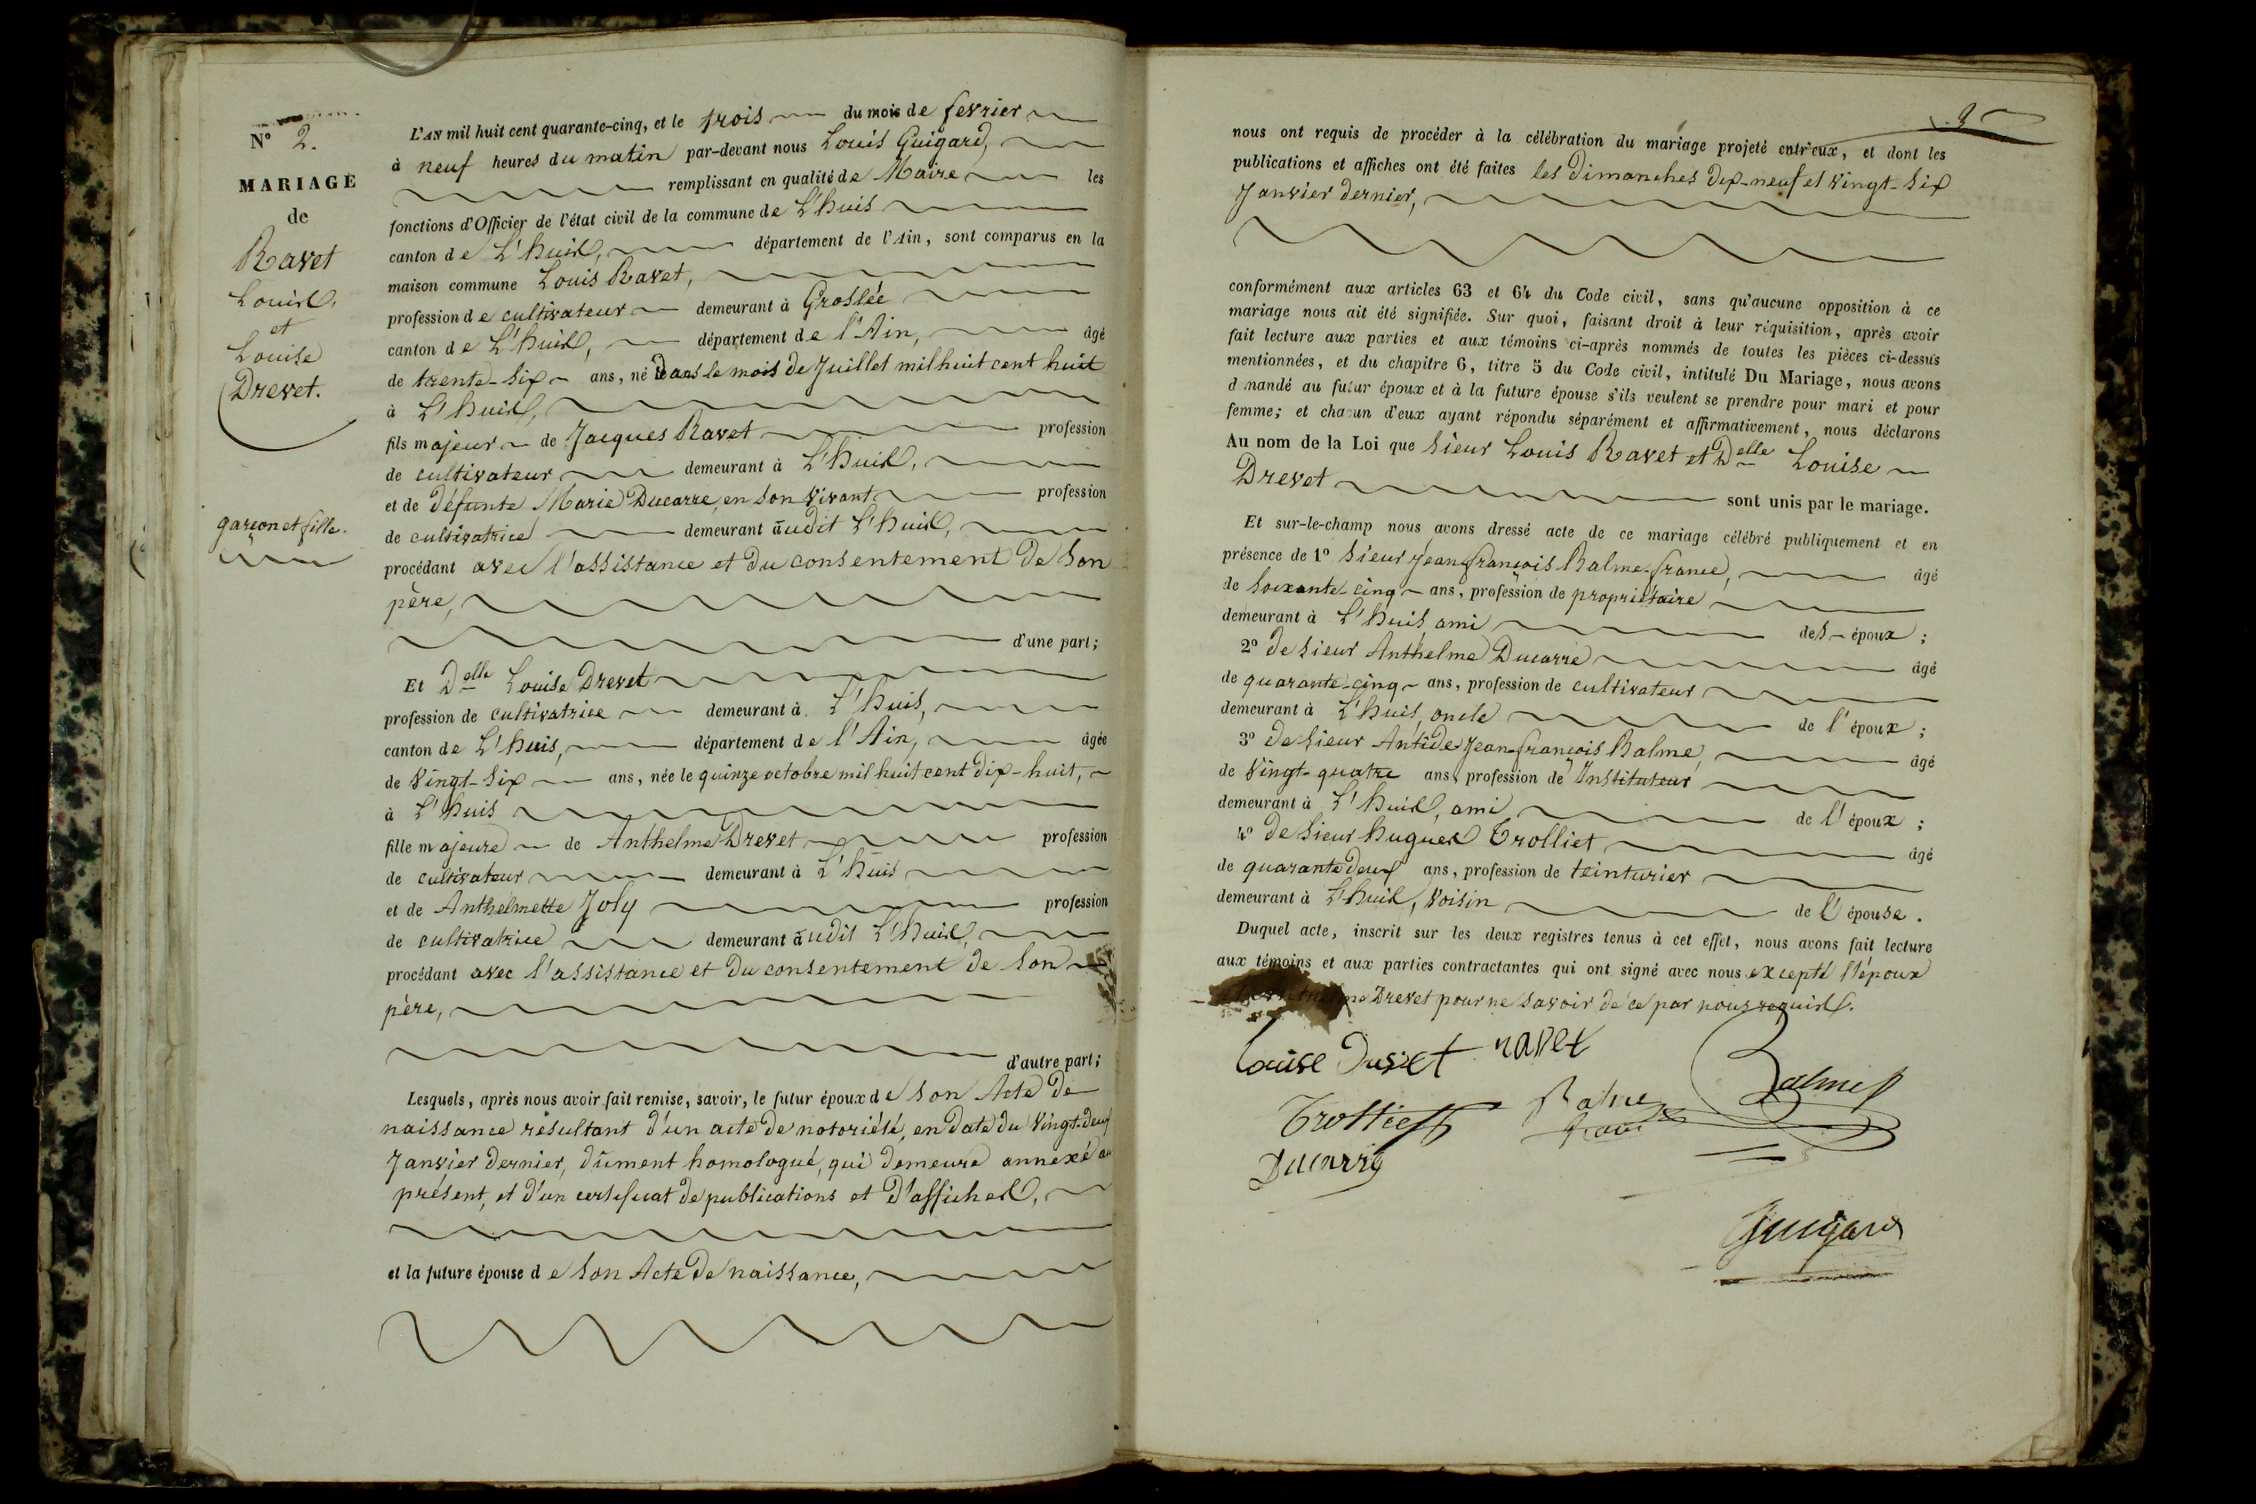 N° 2.
MARIAGE
de
Ravet
Louis,
et
Louise
Drevet.
garçon et fille.
L'AN mil huit cent quarante-cinq, et le trois du mois de fevrier
à neuf heures du matin par-devant nous Louis Guigard,
remplissant en qualité de Maire les
fonctions d'Officier de l'état civil de la commune de L'huis
canton de L'huis, département de l'Ain, sont comparus en la
maison commune Louis Ravet,
profession de cultivateur demeurant à Groslée
canton de L'huis, département de l'Ain, âgé
de trente-six ans, né Dans le mois de Juillet mil huit cent huit
à L'huis,
fils majeur de Jacques Ravet profession
de cultivateur demeurant à L'huis,
et de défunte Marie Ducarre, en son vivant profession
de cultivatrice demeurant audit L'huis,
procédant avec l'assistance et du consentement de son
père,
d'une part;
Et Delle Louise Drevet
profession de cultivatrice demeurant à L'huis,
canton de L'huis, département de l'Ain, âgée
de vingt-six ans, née le quinze octobre mil huit cent dix-huit,
à L'huis
fille majeure de Anthelme Drevet profession
de cultivateur demeurant à L'huis
et de Anthelmette Joly profession
de cultivatrice demeurant audit L'huis,
procédant avec l'assistance et du consentement de son
père,
d'autre part;
Lesquels, après nous avoir fait remise, savoir, le futur époux de son Acte de
naissance résultant d'un acte de notoriété, en date du vingt-deux
Janvier dernier, dûment homologué, qui demeure annexé au
présent, et d'un certificat de publications et d'affiches,
et la future épouse de son Acte de naissance,
3
nous ont requis de procéder à la célébration du mariage projeté entr'eux, et dont les
publications et affiches ont été faites les Dimanches dix-neuf et vingt-six
Janvier dernier,
conformément aux articles 63 et 64 du Code civil, sans qu'aucune opposition à ce
mariage nous ait été signifiée. Sur quoi, faisant droit à leur réquisition, après avoir
fait lecture aux parties et aux témoins ci-après nommés de toutes les pièces ci-dessus
mentionnées, et du chapitre 6, titre 5 du Code civil, intitulé Du Mariage, nous avons
demandé au futur époux et à la future épouse s'ils veulent se prendre pour mari et pour
femme; et chacun d'eux ayant répondu séparément et affirmativement, nous déclarons
Au nom de la Loi que sieur Louis Ravet et Delle Louise
Drevet sont unis par le mariage.
Et sur-le-champ nous avons dressé acte de ce mariage célébré publiquement et en
présence de 1° Sieur Jean françois Balme-france, âgé
de soixante cinq ans, profession de propriétaire
demeurant à L'huis ami des époux;
2° de sieur Anthelme Ducarre âgé
de quarante-cinq ans, profession de cultivateur
demeurant à L'huis, oncle de l'époux;
3° de sieur Antide Jean-françois Balme, âgé
de vingt-quatre ans, profession de Instituteur
demeurant à L'huis, ami de l'époux;
4° de sieur hugues Trolliet âgé
de quarante deux ans, profession de teinturier
demeurant à L'huis, voisin de l'épouse.
Duquel acte, inscrit sur les deux registres tenus à cet effet, nous avons fait lecture
aux témoins et aux parties contractantes qui ont signé avec nous excepté l'époux
Drevet pour ne savoir de ce par nous requis.
Louise Ravet
Trolliet Balme Balme
Ducarre
Guigard